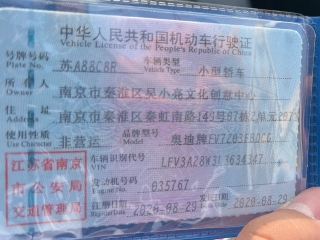 中华人民共和国机动车行驶证
Vehicle License of the People's Republic of China
号牌号码 苏A88C8R 车辆类型 小型轿车
Plate No. Vehicle Type
所有人 南京市秦淮区吴小亮文化创意中心
Owner
住址 南京市秦淮区秦虹南路149号
Address
使用性质 非营运 品牌型号 奥迪牌
Use Character Model
江苏省南京
市公安局
交通管理局
车辆识别代号
VIN
发动机号码 035767
Engine No.
注册日期 2020-08-29 发证日期 2020-08-29
Register Date Issue Date